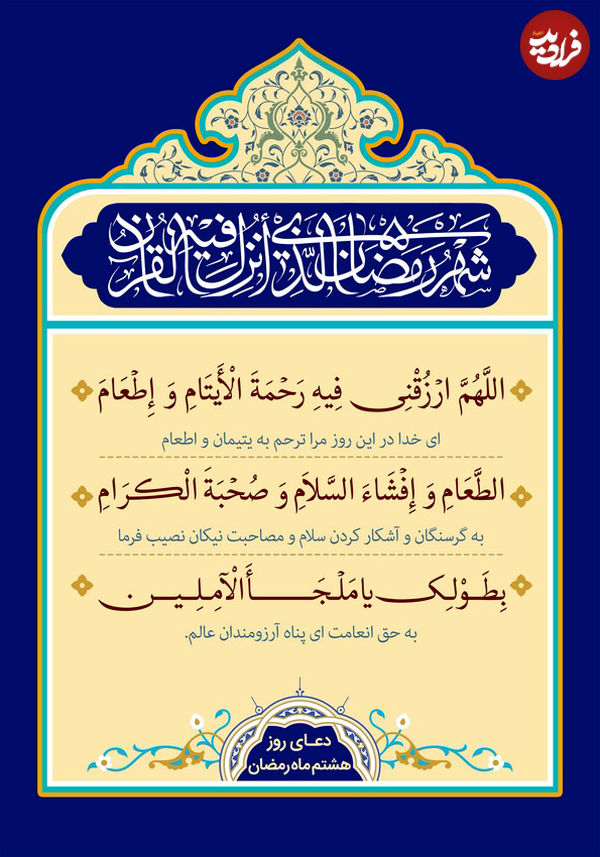 فرادید
شَهْرُ رَمَضَانَ الَّذِي أُنْزِلَ فِيهِ الْقُرْآنُ
اللَّهُمَّ ارْزُقْنِی فِیهِ رَحْمَةَ الْأَیْتَامِ وَ إِطْعَامَ
ای خدا در این روز مرا ترحم به یتیمان و اطعام
الطَّعَامِ وَ إِفْشَاءَ السَّلاَمِ وَ صُحْبَةَ الْکِرَامِ
به گرسنگان و آشکار کردن سلام و مصاحبت نیکان نصیب فرما
بِطَوْلِکَ یا مَلْجَأَ الْآمِلِینَ
به حق انعامت ای پناه آرزومندان عالم.
دعای روز
هشتم ماه رمضان